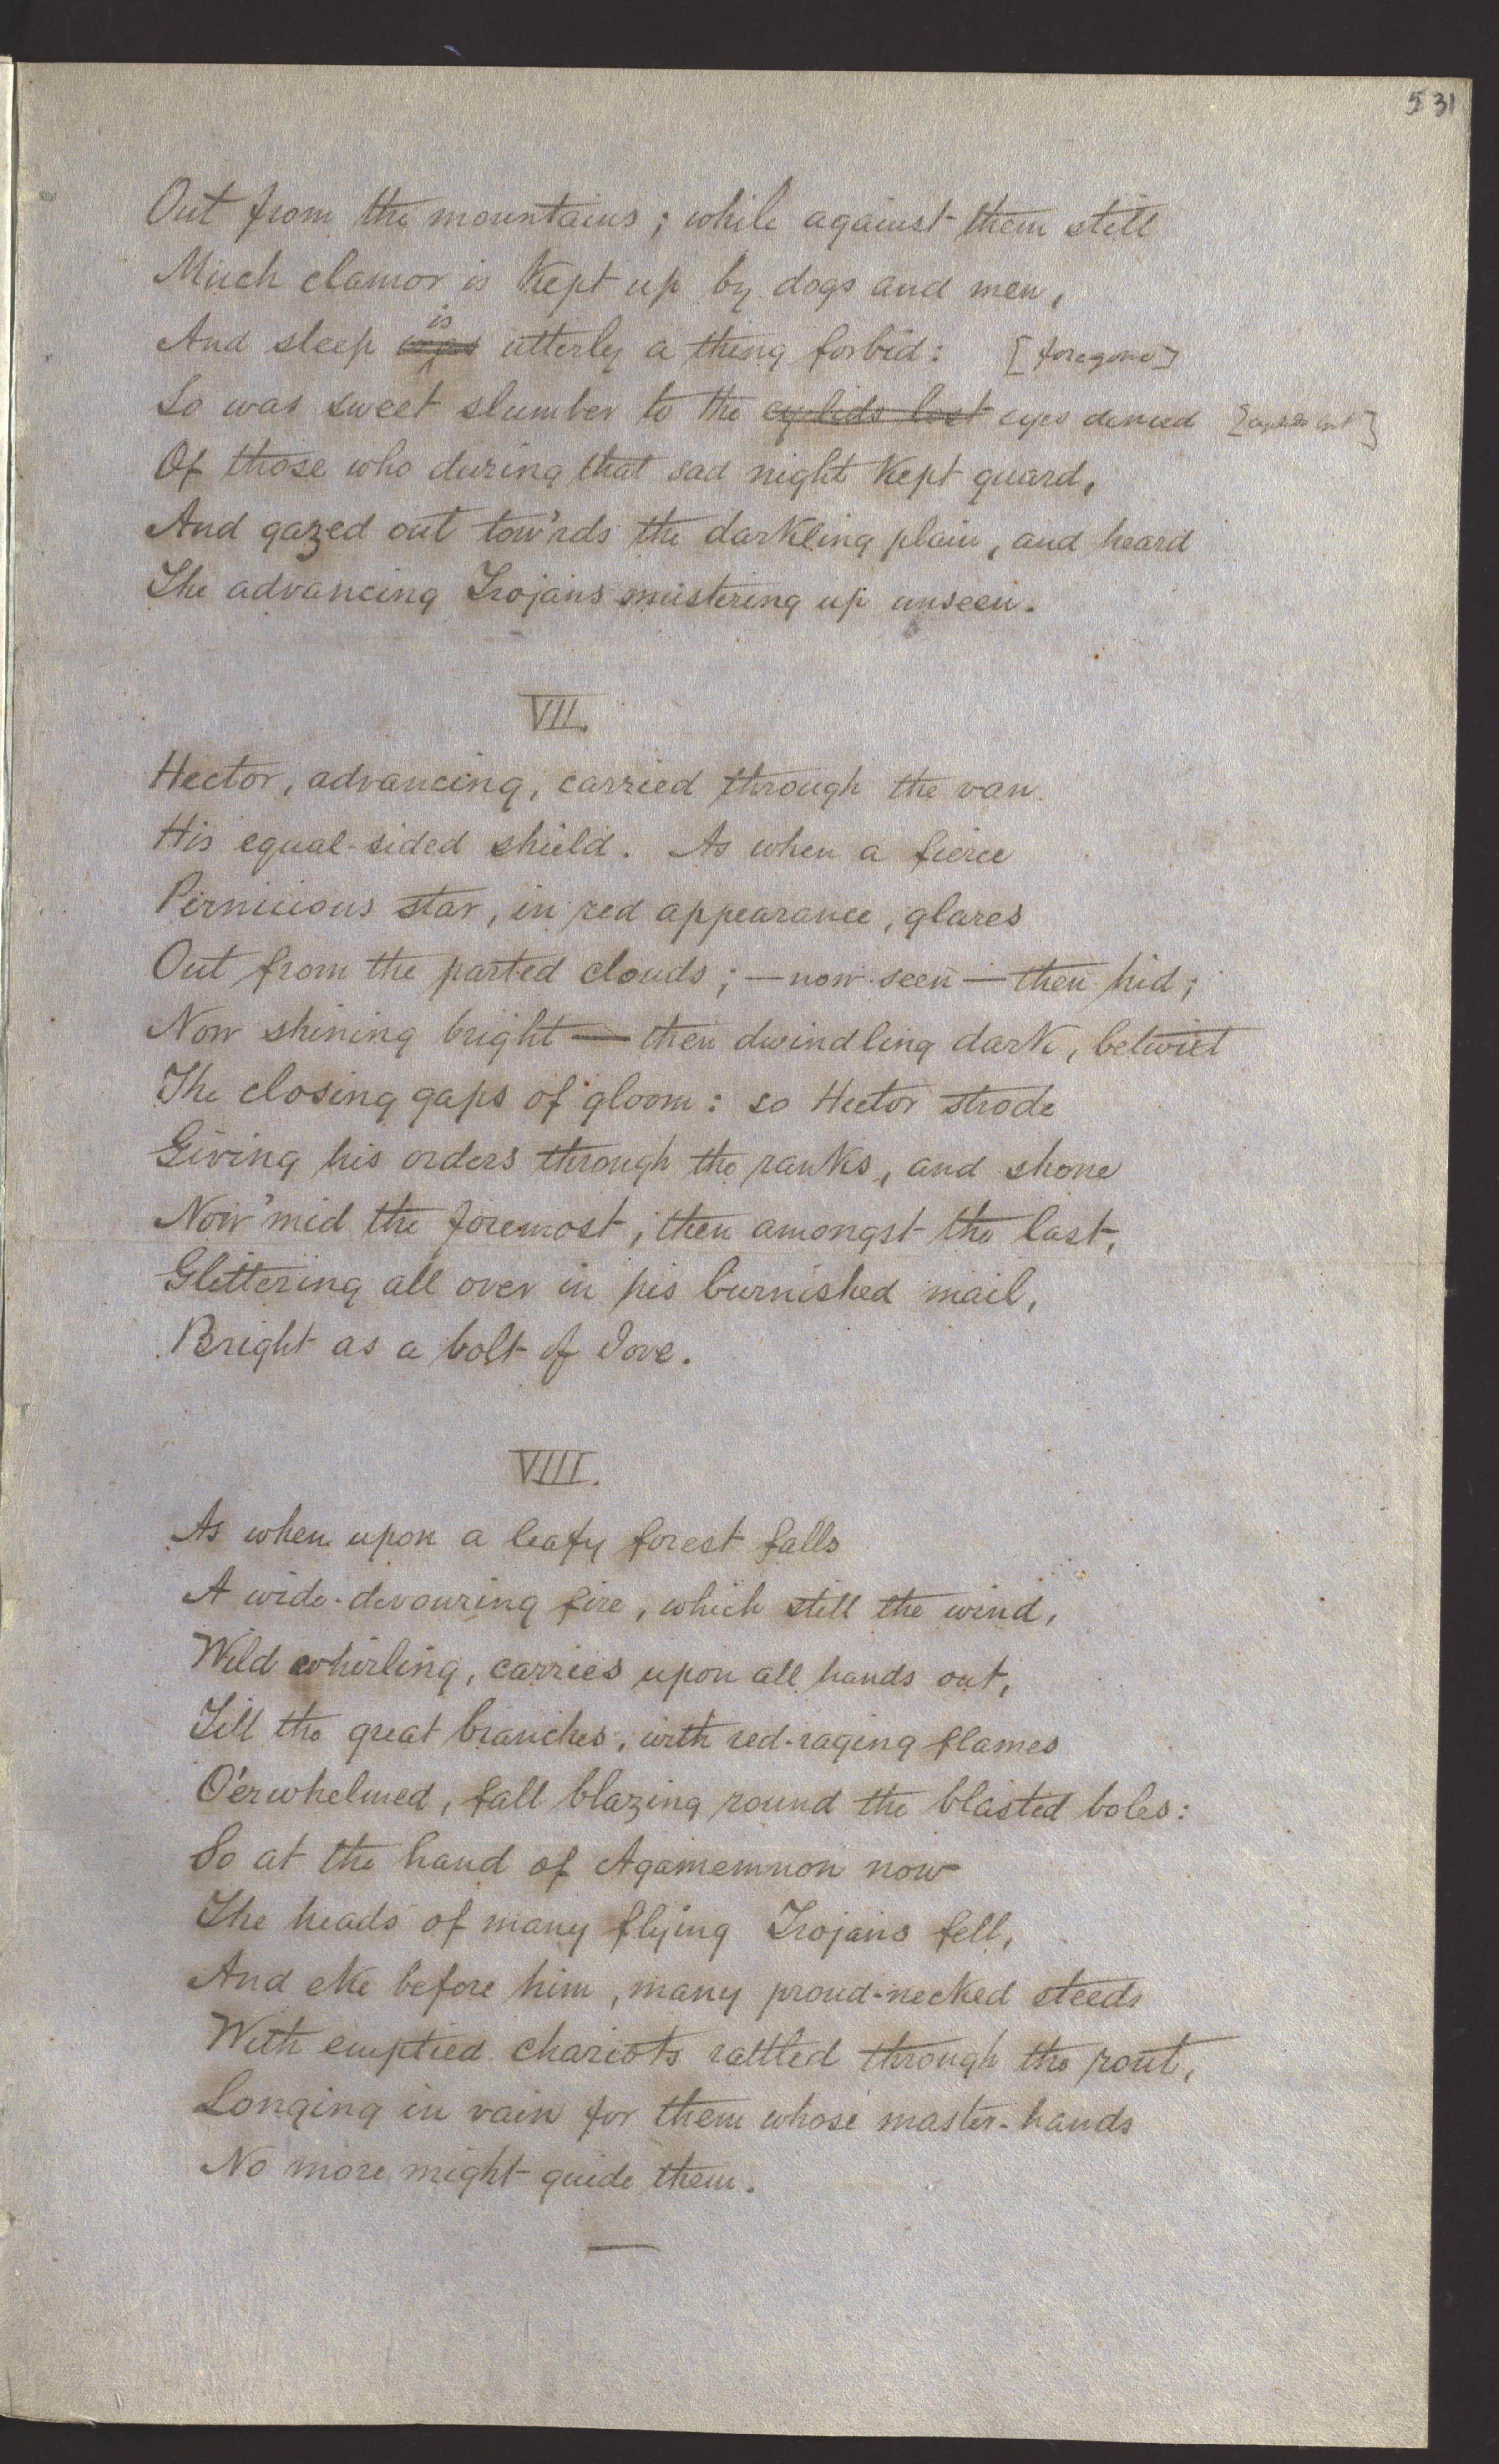 531
Out from the mountains; while against them still
Much clamor is kept up by dogs and men,
is
And sleep was utterly a thing forbid: [foregone]
So was sweet slumber to the eyelids lost eyes denied [eyelids lost]
Of those who during that sad night kept guard,
And gazed out tow'rds the darkling plain, and heard
The advancing Trojans mustering up unseen.
VII.
Hector, advancing, carried through the van
His equal-sided shield. As when a fierce
Pernicious star, in red appearance, glares
Out from the parted clouds; — now seen — then hid;
Now shining bright — then dwindling dark, betwixt
The closing gaps of gloom: so Hector strode
Giving his orders through the ranks, and shone
Now 'mid the foremost, then amongst the last,
Glittering all over in his burnished mail,
Bright as a bolt of Jove.
VIII.
As when upon a leafy forest falls
A wide-devouring fire, which still the wind,
Wild whirling, carries upon all hands out,
Till the great branches, with red-raging flames
O'erwhelmed, fall blazing round the blasted boles:
So at the hand of Agamemnon now
The heads of many flying Trojans fell,
And eke before him, many proud-necked steeds
With emptied chariots rattled through the rout,
Longing in vain for them whose master-hands
No more might guide them.